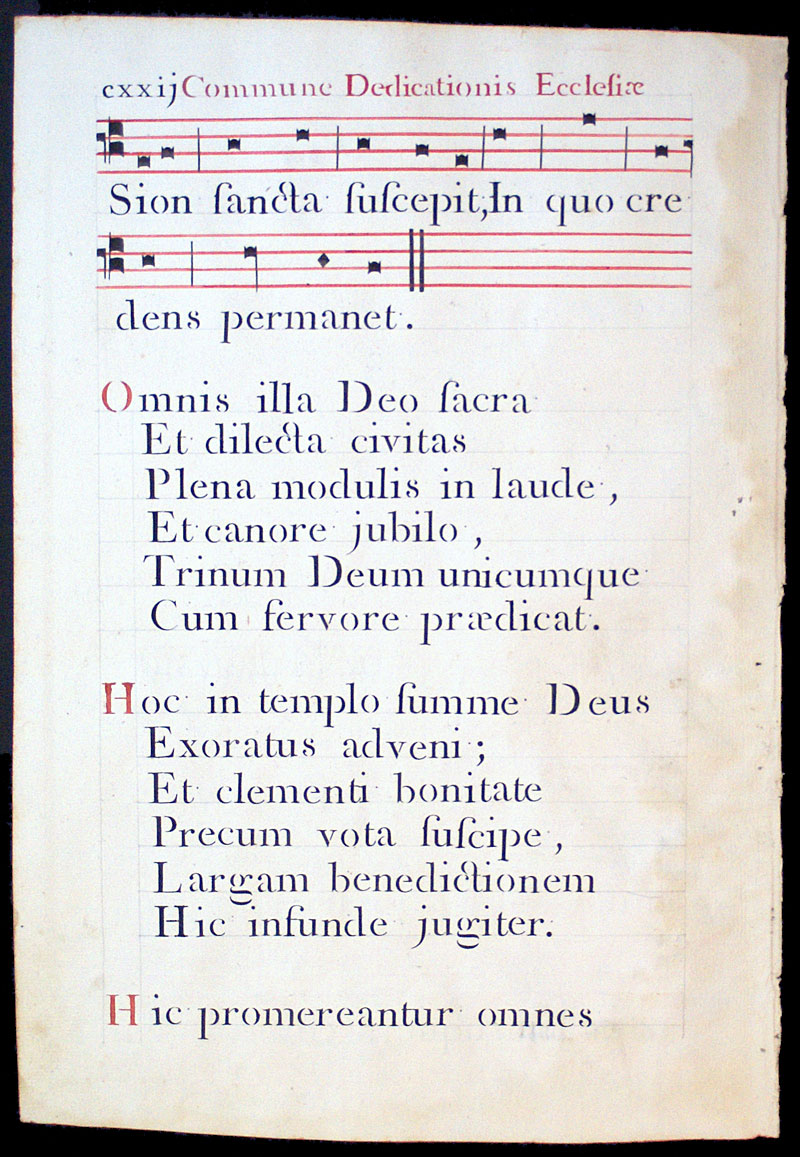 cxxij Commune Dedicationis Eccleſiæ
Sion ſancta ſuſcepit, In quo cre
dens permanet.
Omnis illa Deo ſacra
Et dilecta civitas
Plena modulis in laude,
Et canore jubilo,
Trinum Deum unicumque
Cum fervore prædicat.
Hoc in templo ſumme Deus
Exoratus adveni;
Et clementi bonitate
Precum vota ſuſcipe,
Largam benedictionem
Hic infunde jugiter.
Hic promereantur omnes